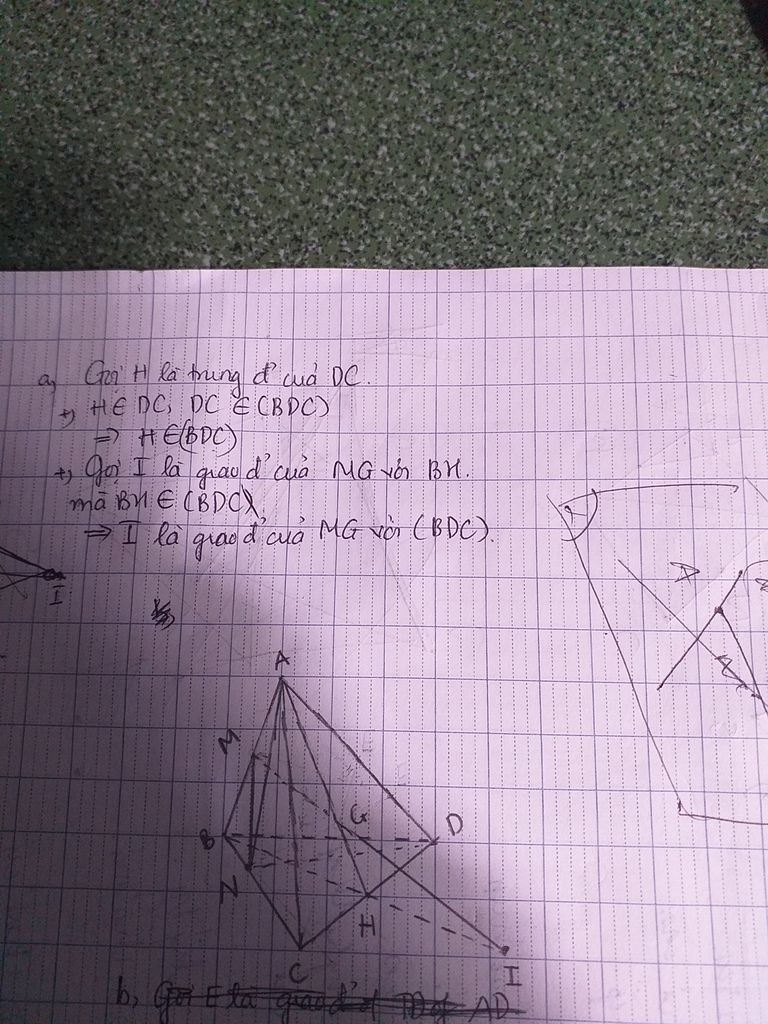 a, Gọi H là trung đ' của DC.
+, H ∈ DC, DC ∈ (BDC)
⇒ H ∈ (BDC)
+, Gọi I là giao đ' của MG với BH.
mà BH ∈ (BDC),
⇒ I là giao đ' của MG với (BDC).
I
A
M
G
B
D
N
H
C
I
b,
A